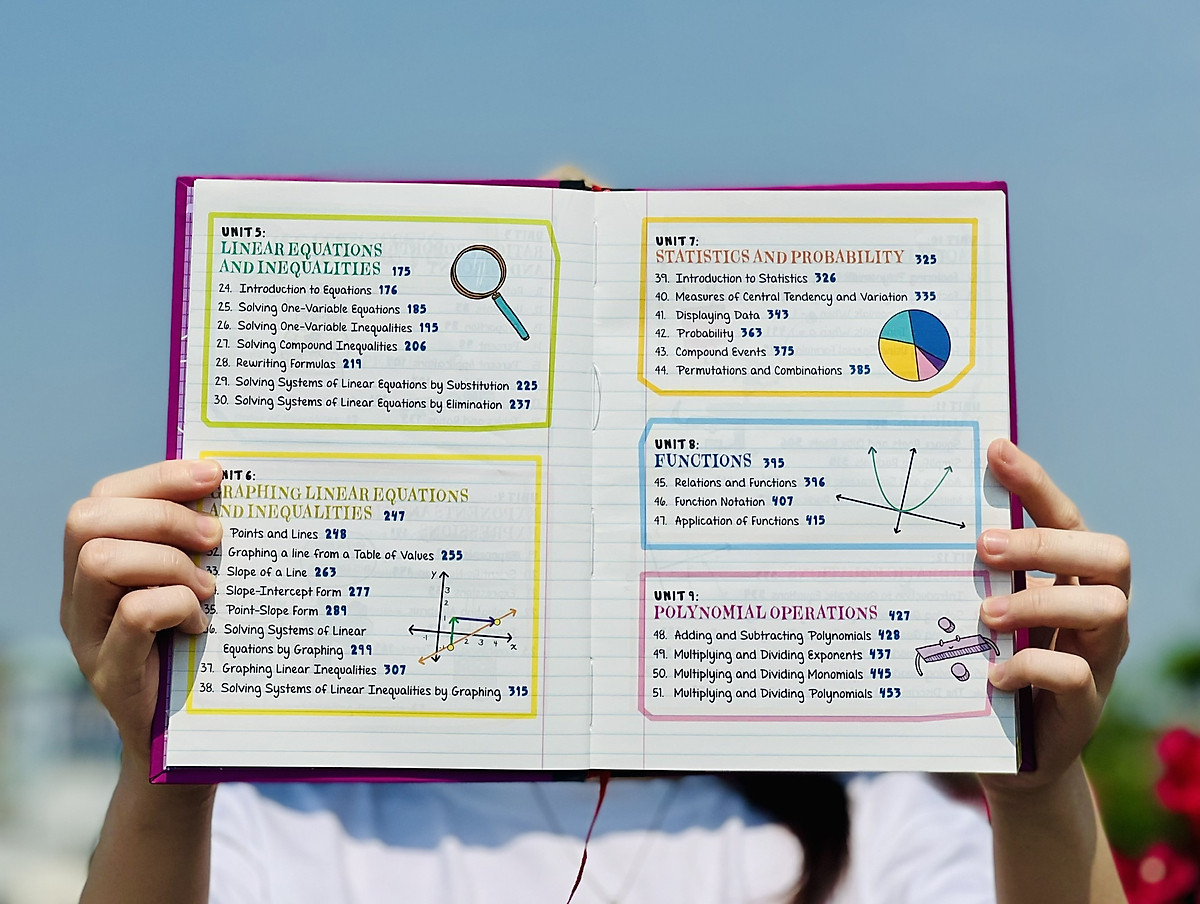 UNIT 5:
LINEAR EQUATIONS
AND INEQUALITIES 175
24. Introduction to Equations 176
25. Solving One-Variable Equations 185
26. Solving One-Variable Inequalities 195
27. Solving Compound Inequalities 206
28. Rewriting Formulas 219
29. Solving Systems of Linear Equations by Substitution 225
30. Solving Systems of Linear Equations by Elimination 237
UNIT 6:
GRAPHING LINEAR EQUATIONS
AND INEQUALITIES 247
Points and Lines 248
32. Graphing a line from a Table of Values 255
33. Slope of a Line 263
Slope-Intercept Form 277
35. Point-Slope Form 289
36. Solving Systems of Linear
Equations by Graphing 299
37. Graphing Linear Inequalities 307
38. Solving Systems of Linear Inequalities by Graphing 315
y
3
2
1
-1 2 3 4 x
-1
UNIT 7:
STATISTICS AND PROBABILITY 325
39. Introduction to Statistics 326
40. Measures of Central Tendency and Variation 335
41. Displaying Data 343
42. Probability 363
43. Compound Events 375
44. Permutations and Combinations 385
UNIT 8:
FUNCTIONS 395
45. Relations and Functions 396
46. Function Notation 407
47. Application of Functions 415
UNIT 9:
POLYNOMIAL OPERATIONS 427
48. Adding and Subtracting Polynomials 428
49. Multiplying and Dividing Exponents 437
50. Multiplying and Dividing Monomials 445
51. Multiplying and Dividing Polynomials 453